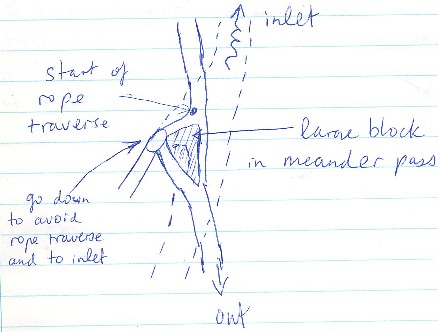 inlet
start of
rope
traverse
large block
in meander pass
go down
to avoid
rope traverse
and to inlet
out